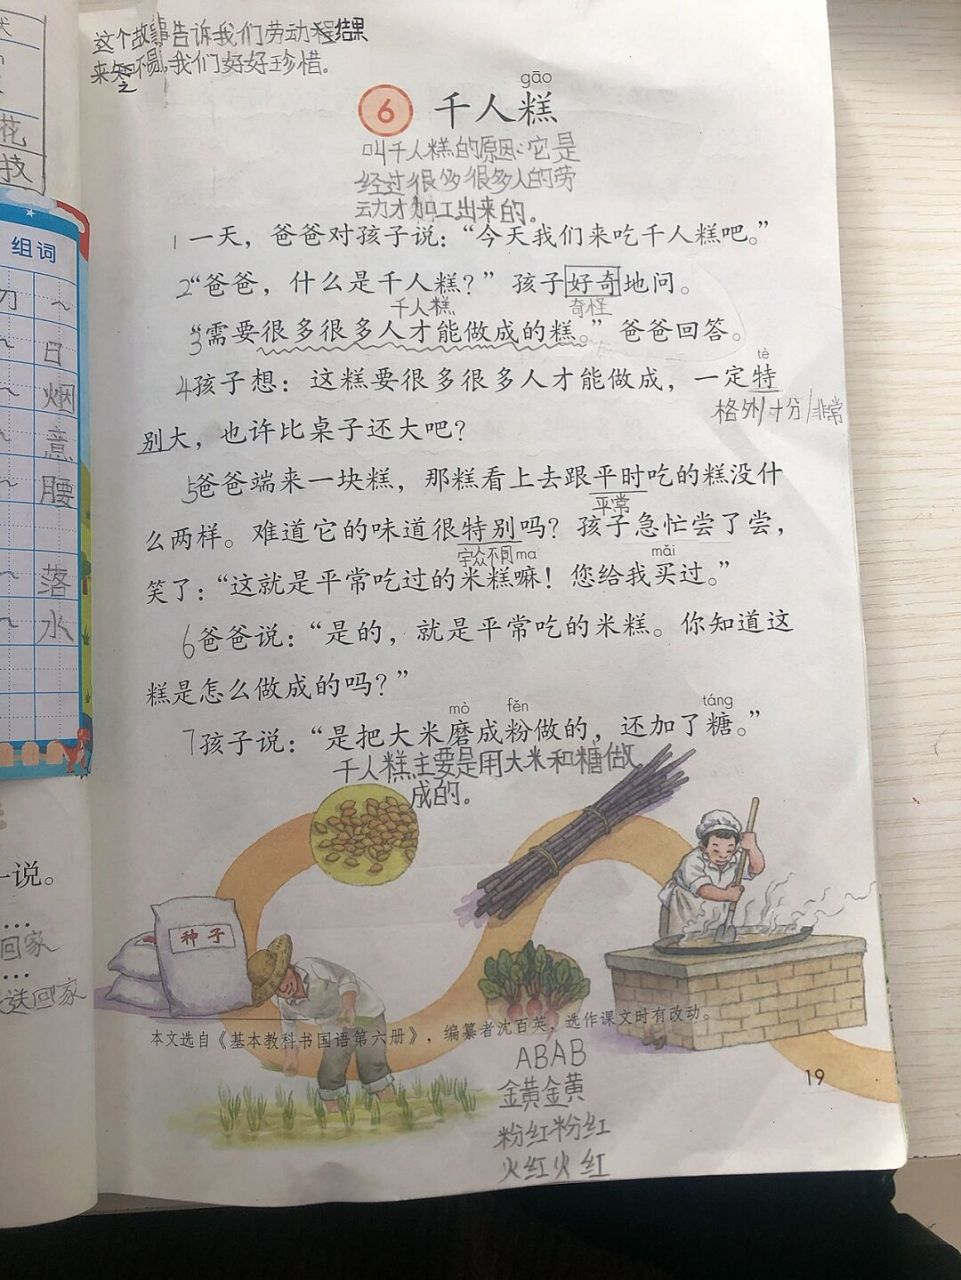 这个故事告诉我们劳动
结果
来之不易,我们好好珍惜。
gāo
6 千人糕
叫千人糕的原因:它是
经过很多很多人的劳
动才加工出来的。
1 一天，爸爸对孩子说：“今天我们来吃千人糕吧。”
2 “爸爸，什么是千人糕？”孩子好奇地问。
千人糕 奇怪
3 “需要很多很多人才能做成的糕。”爸爸回答。
tè
4 孩子想：这糕要很多很多人才能做成，一定特
格外/十分/非常
别大，也许比桌子还大吧？
5 爸爸端来一块糕，那糕看上去跟平时吃的糕没什
平常
么两样。难道它的味道很特别吗？孩子急忙尝了尝，
与众不同 ma mǎi
笑了：“这就是平常吃过的米糕嘛！您给我买过。”
6 爸爸说：“是的，就是平常吃的米糕。你知道这
糕是怎么做成的吗？”
mò fěn táng
7 孩子说：“是把大米磨成粉做的，还加了糖。”
千人糕主要是用大米和糖做
成的。
种子
本文选自《基本教科书国语第六册》，编纂者沈百英，选作课文时有改动。
ABAB
金黄金黄
19
粉红粉红
火红火红
花
技
组词
刀 ~
~ 日
~ 烟
~ 意
~ 腰
~ 落
~ 水
一说。
……
回家
送回家